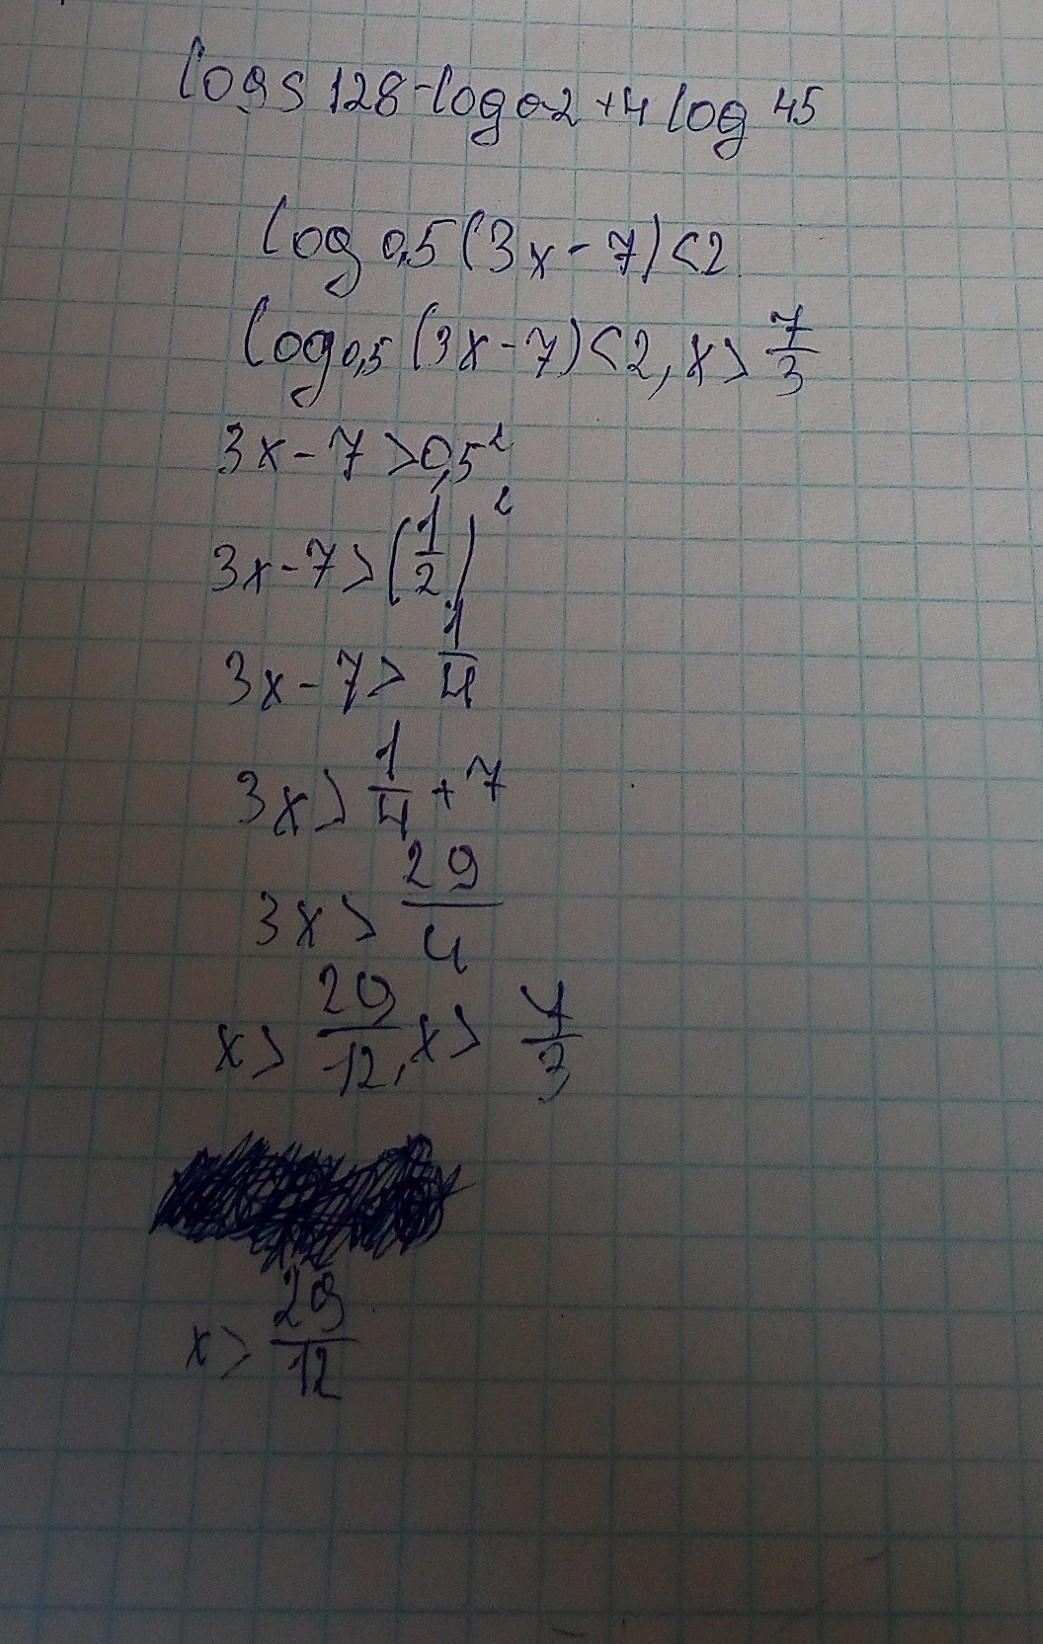 log5 128-log02+4log 45
log0,5(3x-7)<2
log0,5(3x-7)<2, x>7/3
3x-7>0,5²
3x-7>(1/2)²
3x-7>1/4
3x>1/4+7
3x>29/4
x>29/12, x>7/3
x>29/12